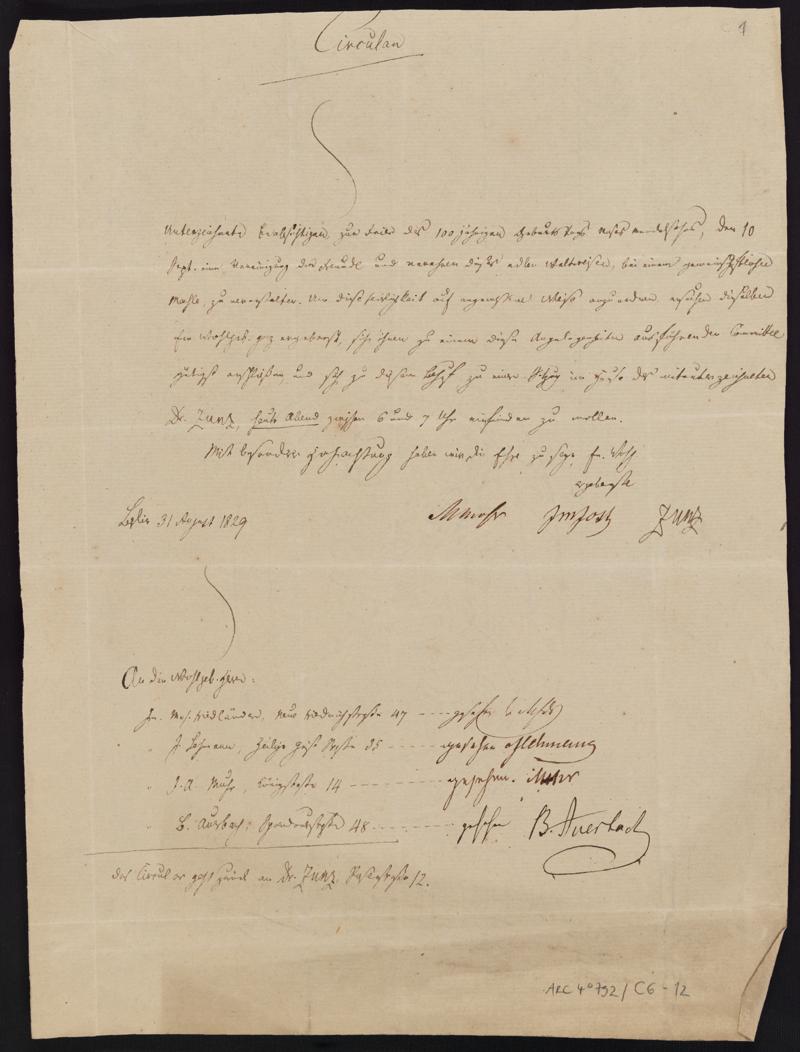 Circular
1
Unterzeichnete beabsichtigen zur Feier des 100 jährigen Geburtstags Moses Mendelssohns, den 10
Sept. eine Vereinigung der Freunde und Verehrer dieses edlen Weltweisen, bei einem gemeinschaftlichen
Mahle, zu veranstalten. Um diese Feierlichkeit auf angemessene Weise anzuordnen, ersuchen dieselben
Ew Wohlgeb. ganz ergebenst, sich ihnen zu einem diese Angelegenheiten ausführenden Committee
gütigst anschließen und sich zu diesem Behuf zu einer Sitzung im Hause des mitunterzeichneten
Dr. Zunz, heute Abend zwischen 6 und 7 Uhr einfinden zu wollen.
Mit besonderer Hochachtung haben wir die Ehre zu seyn Ew. Wohlg
ergebenste
Berlin 31 August 1829
Moser JMJost Zunz
An die Wohlgeb. Herren:
Hn. Mos. Friedländer, Neue Friedrichstraße 47 --- gesehen
" J. Lehmann, Heilige Geist Straße 35 --- gesehen Lehmann
" J. A. Muhr, Königstraße 14 --- gesehen. Muhr
" B. Auerbach, Spandauerstraße 48 --- gesehen B. Auerbach
Das Circular geht zurück an Dr. Zunz, 12.
ARC 4° 792 / C6 - 12